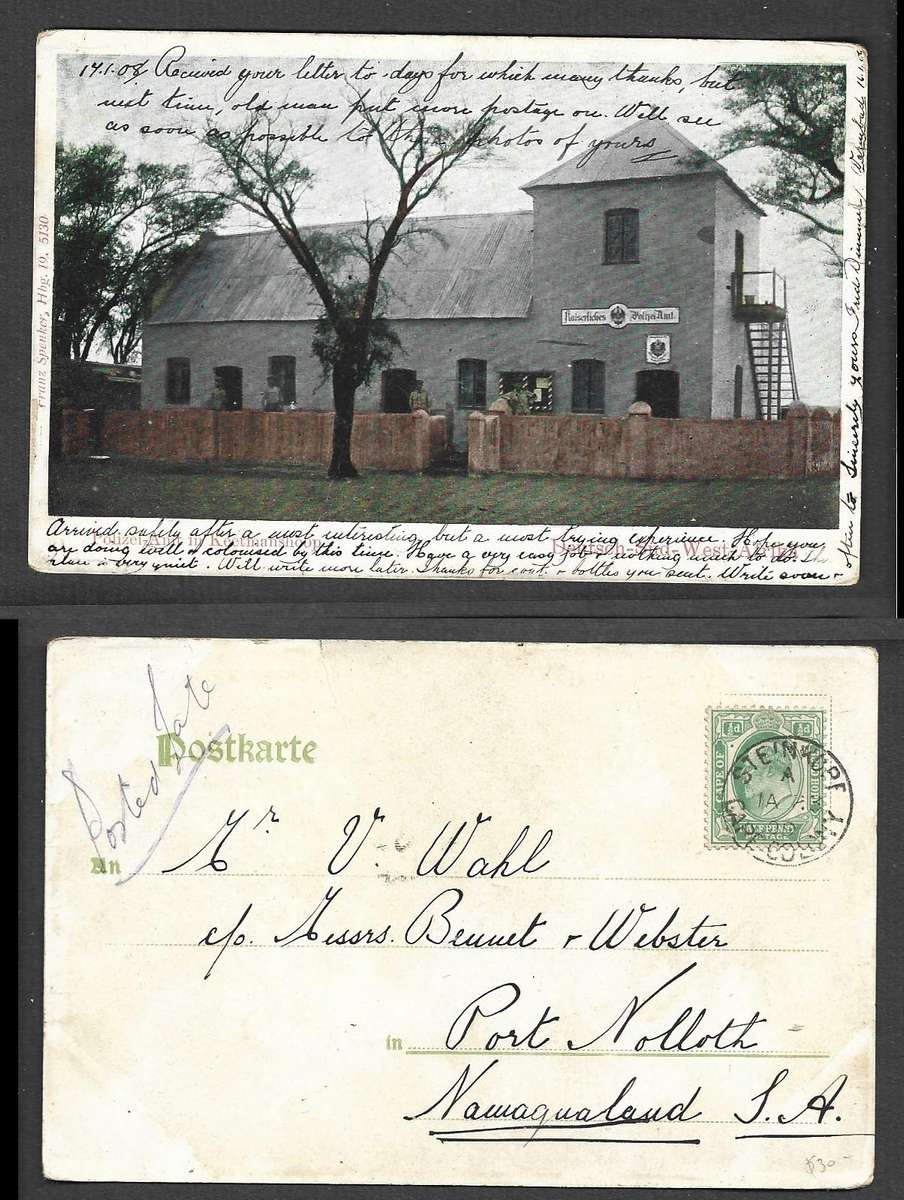 17.1.08 Received your letter to-days for which many thanks, but
next time, old man put more postage on. Will see
as soon as possible to photos of yours
Kaiserliches Polizei-Amt.
Franz Spenker, Hbg. 19. 5130
Polizei-Amt in Keetmanshoop
Deutsch-Süd-West-Afrika
Arrived safely after a most interesting, but a most trying experience. Hope you
are doing well & colonised by this time. Have a very easy job & nothing much to do.
place is very quiet. Will write more later. Thanks for cont. & bottles you sent. Write soon &
often to Sincerely yours Fred
Posted Late
Postkarte
½d ½d
CAPE OF GOOD HOPE
HALFPENNY
POSTAGE
STEINKOPF
A
JA
CAPE COLONY
An Mr V. Wahl
c/o. Messrs. Bennet & Webster
in Port Nolloth
Namaqualand S.A.